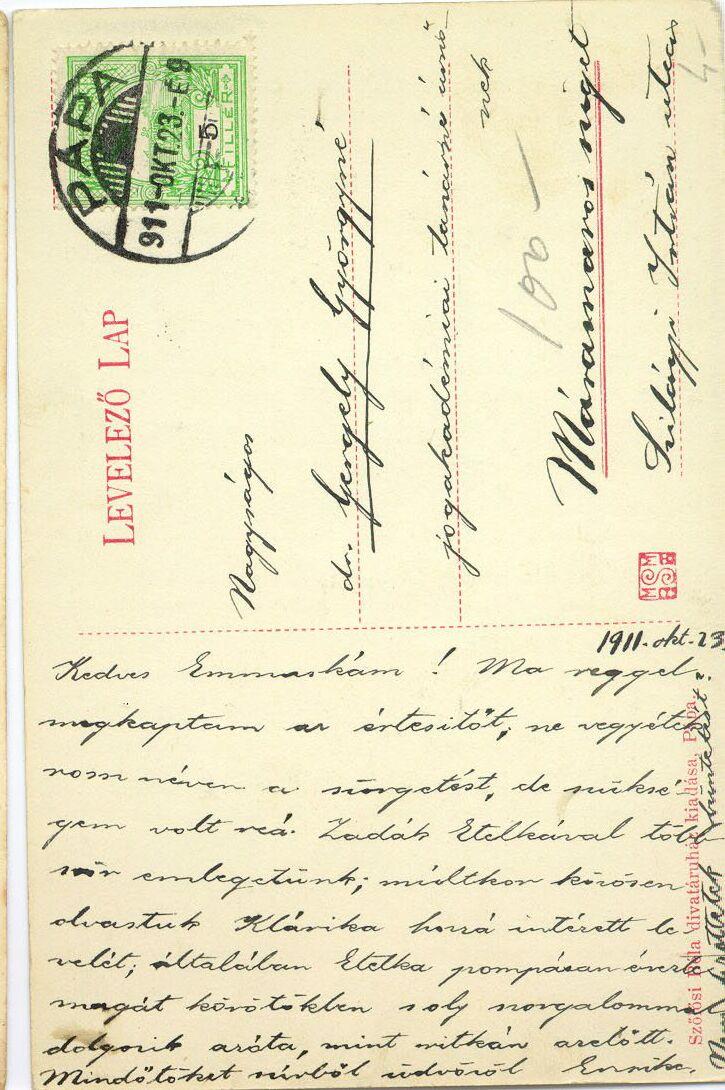 PÁPA
911-OKT.23.-É9
5
FILLÉR
LEVELEZŐ LAP
Nagyságos
dr. Gergely Györgyné
jogakadémiai tanárné úrnő-
nek
100 -
Máramarossziget
Szilágyi István utca
4-
MSM
1911. okt. 23.
Kedves Emmuskám! Ma reggel
megkaptam az értesitőt, ne vegyétek
rossz néven a sürgetést, de szüksé-
gem volt reá. Zadák Etelkával több-
ször emlegetünk; multkor közösen
olvastuk Klárika hozzá intézett le-
velét; általában Etelka pompásan érezte
magát körötökben s oly szorgalommal
dolgozik azóta, mint ritkán azelőtt.
Mindőtöket szívből üdvözöl Enrike.
büntetést?
Szőtősi Béla divatáruház kiadása, Pápa.